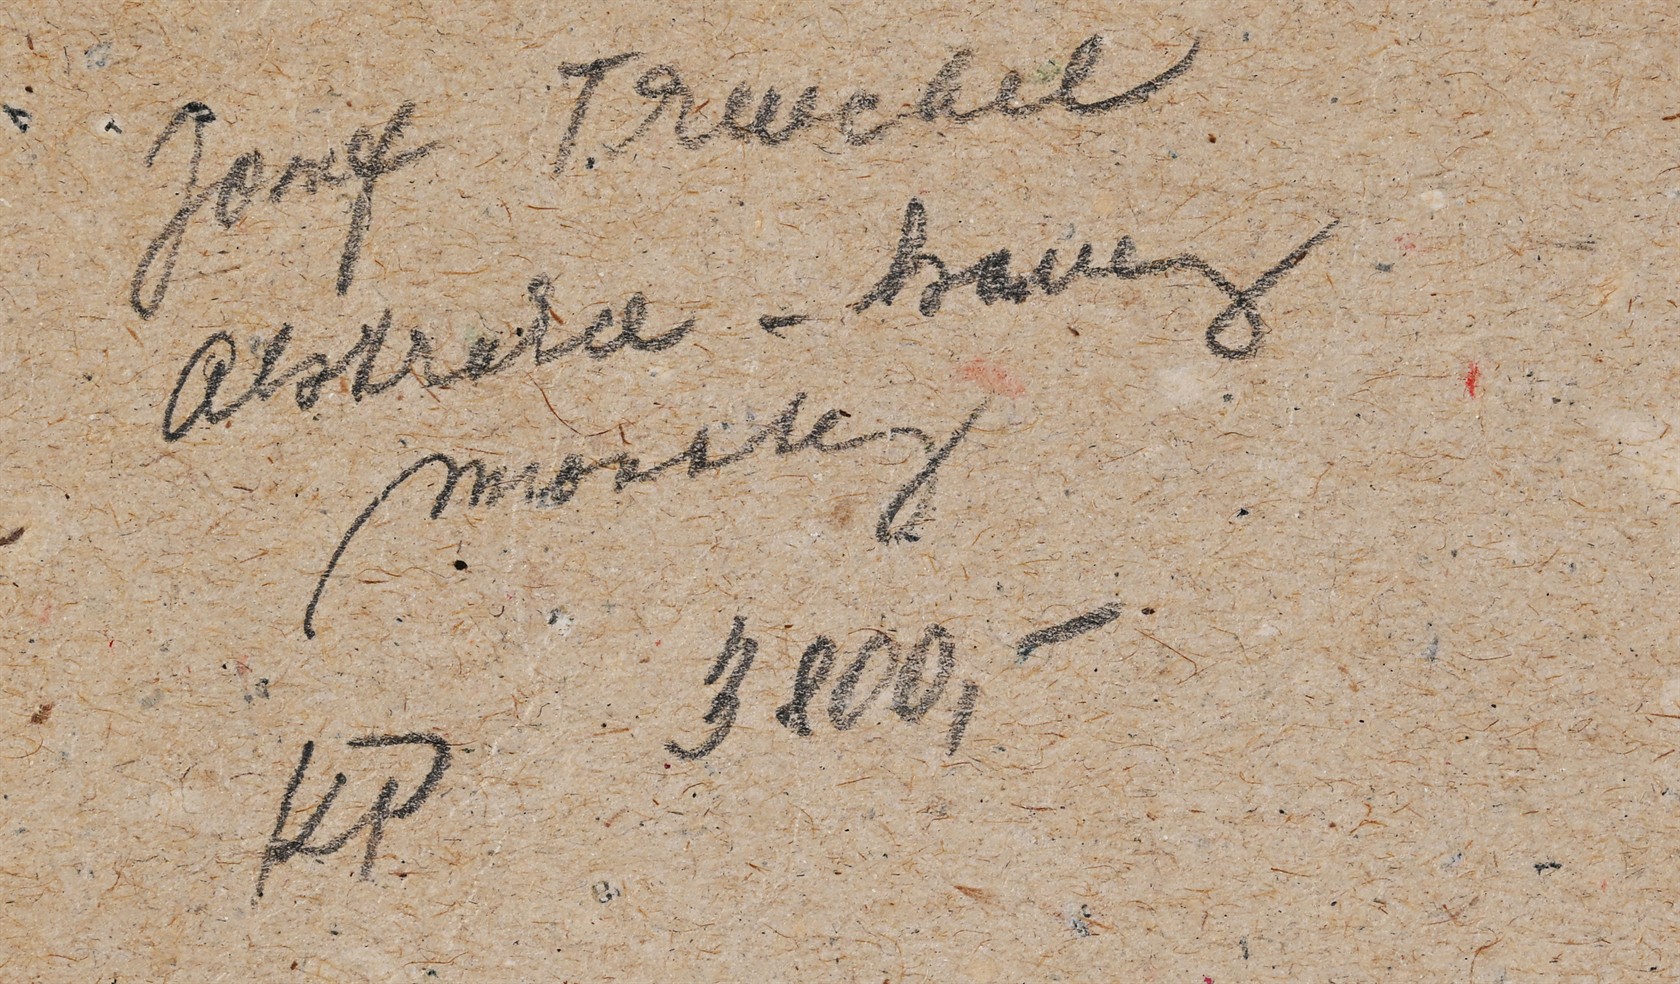 Josef Treuchel
Abstrakce - barevý
monotyp
3 800,-
KP